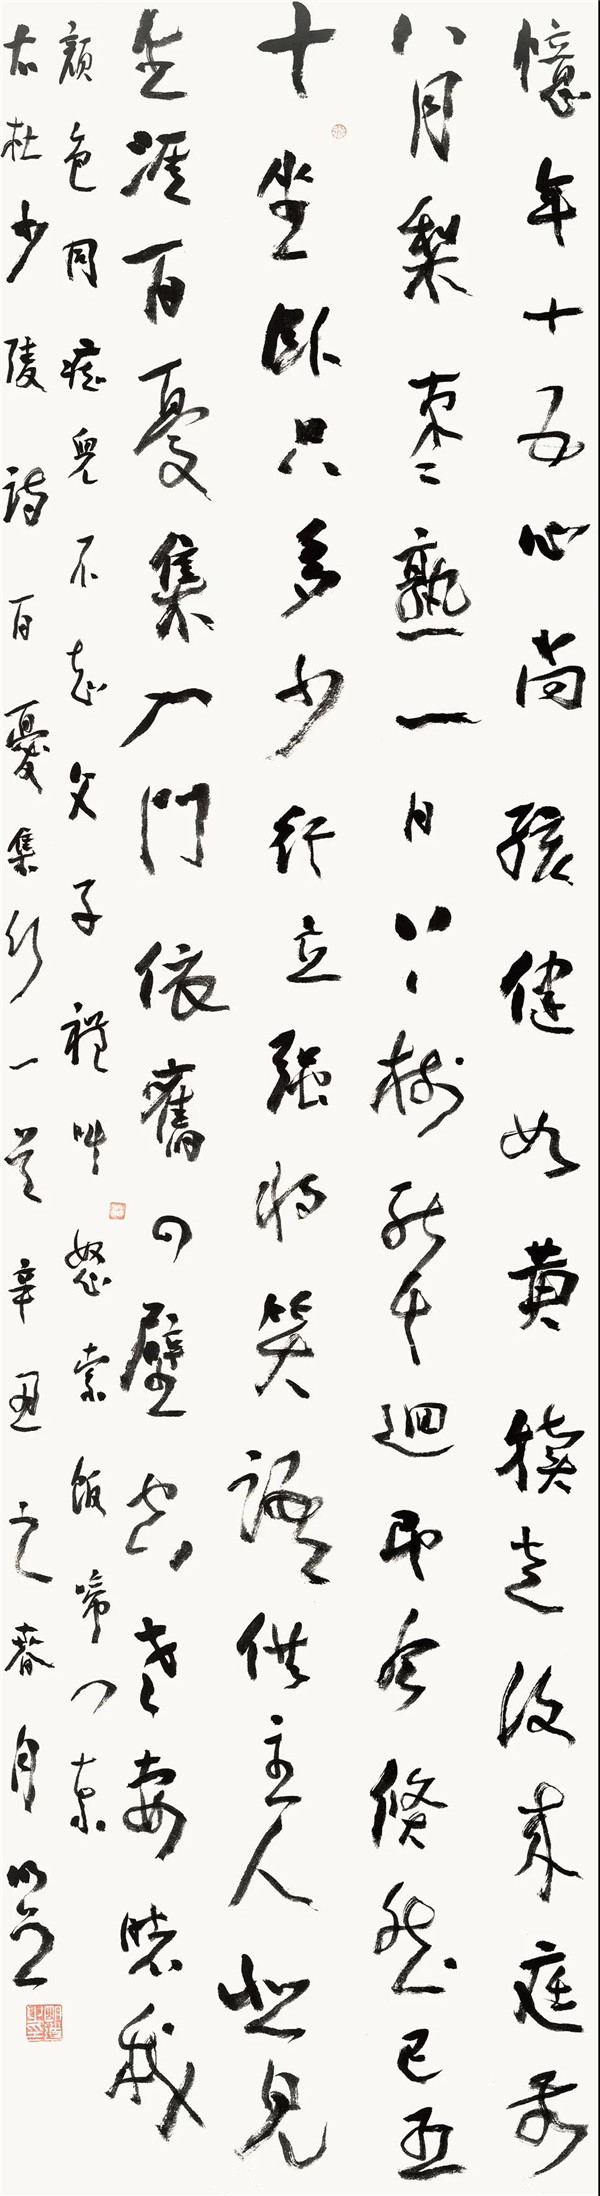 憶年十五心尚孩健如黃犢走復來庭前
八月梨棗熟一日上樹能千迴即今倏忽已五
十坐臥只多少行立強將笑語供主人悲見
生涯百憂集入門依舊四壁空老妻睹我
顏色同癡兒不知父子禮叫怒索飯啼門東
右杜少陵詩百憂集行一首辛丑之春月